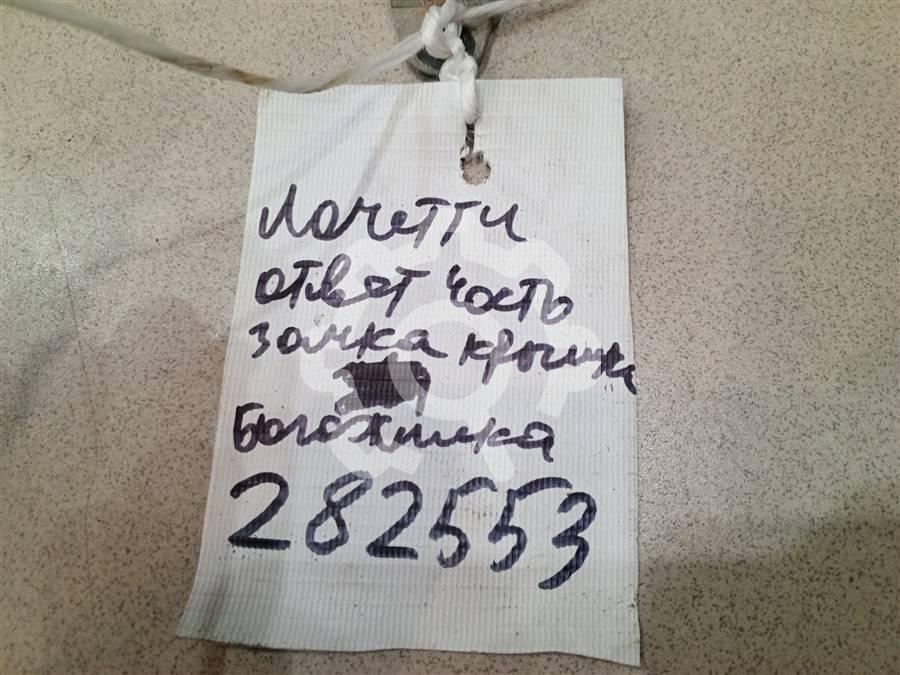 Лачетти
ответ часть
замка крышки
багажника
282553